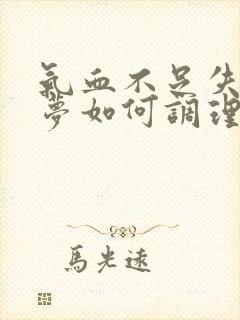 氣血不足失
夢如何調理
馬光遠